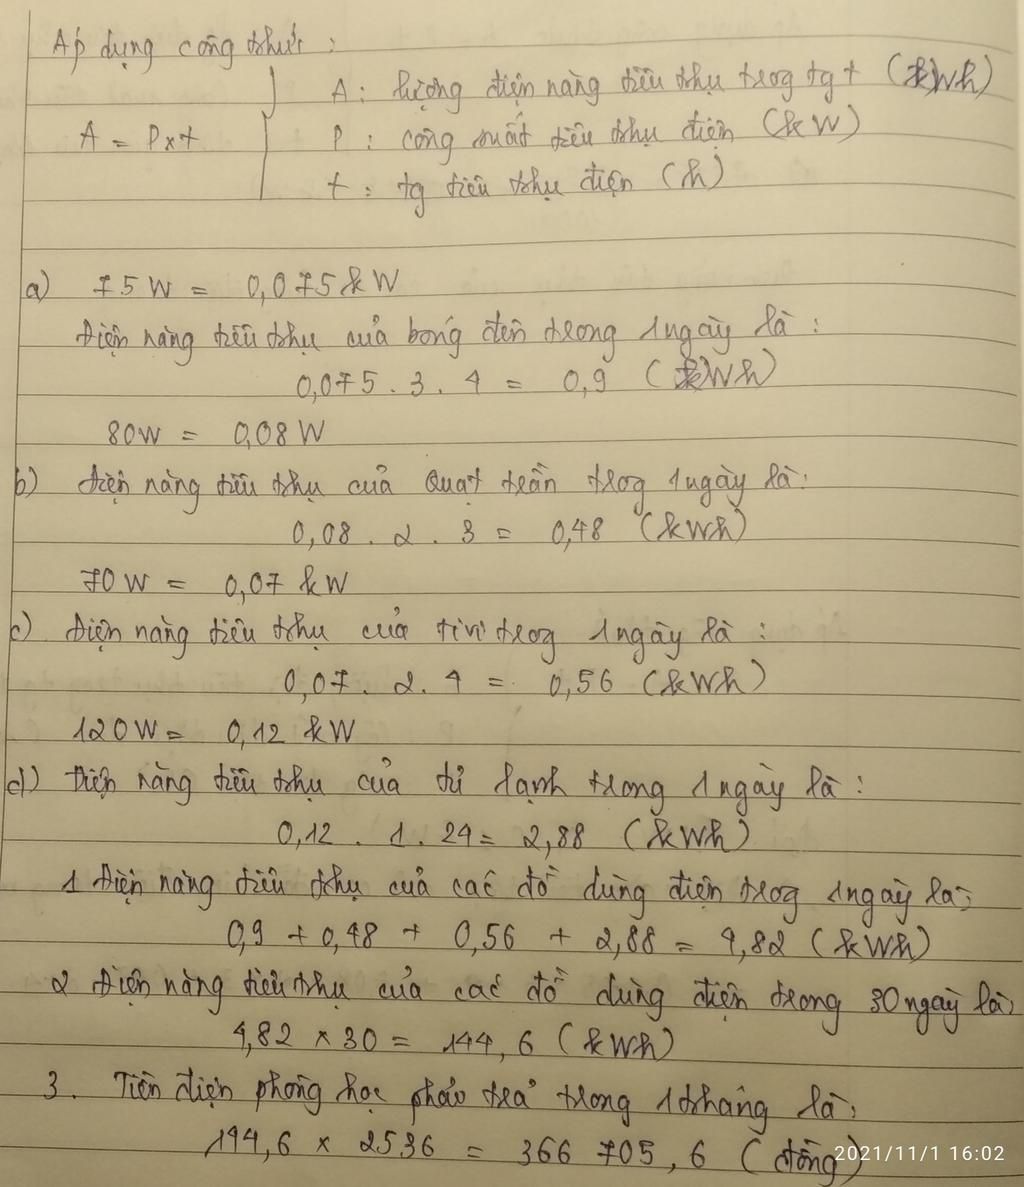 Áp dụng công thức :
A = P x t
A : lượng điện năng tiêu thụ trog tg t (kWh)
P : công suất tiêu thụ điện (kW)
t : tg tiêu thụ điện (h)
a) 75W = 0,075kW
Điện năng tiêu thụ của bóng đèn trong 1 ngày là :
0,075 . 3 . 4 = 0,9 (kWh)
80W = 0,08W
b) Điện năng tiêu thụ của quạt trần trog 1 ngày là :
0,08 . 2 . 3 = 0,48 (kWh)
70W = 0,07 kW
c) Điện năng tiêu thụ của tivi trog 1 ngày là :
0,07 . 2 . 4 = 0,56 (kWh)
120W = 0,12 kW
d) Điện năng tiêu thụ của tủ lạnh trong 1 ngày là :
0,12 . 1 . 24 = 2,88 (kWh)
1 Điện năng tiêu thụ của các đồ dùng điện trog 1 ngày là :
0,9 + 0,48 + 0,56 + 2,88 = 4,82 (kWh)
2 Điện năng tiêu thụ của các đồ dùng điện trong 30 ngày là :
4,82 x 30 = 144,6 (kWh)
3. Tiền điện phòng học phải trả trong 1 tháng là :
144,6 x 2536 = 366 705,6 (đồng)
2021/11/1 16:02